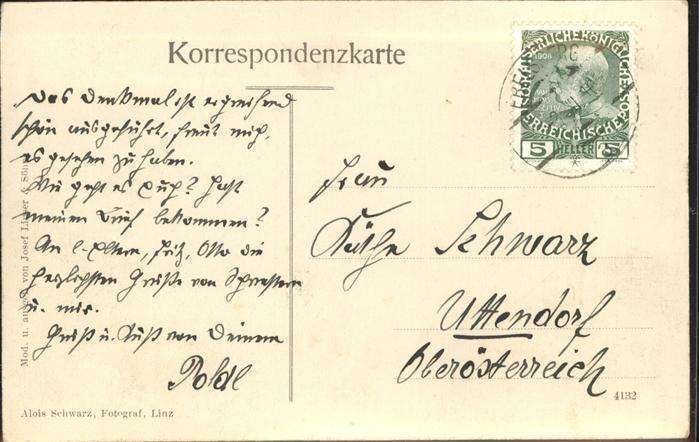 Korrespondenzkarte
Das Denkmal ist ergreifend
schön ausgeführt, freut mich,
es gesehen zu haben.
Wie geht es Euch? Hast
meinen Brief bekommen?
An Eltern, Fritz, Otto die
herzlichsten Grüße von
u. mir.
Gruß u. Kuß von Deinem
Poldl
Frau
Käthe Schwarz
Uttendorf
Oberösterreich
KAISERLICHE KÖNIGLICHE
ÖSTERREICHISCHE POST
1908
5 HELLER 5
Mod. u. ausgef. von Josef
Alois Schwarz, Fotograf, Linz
4132